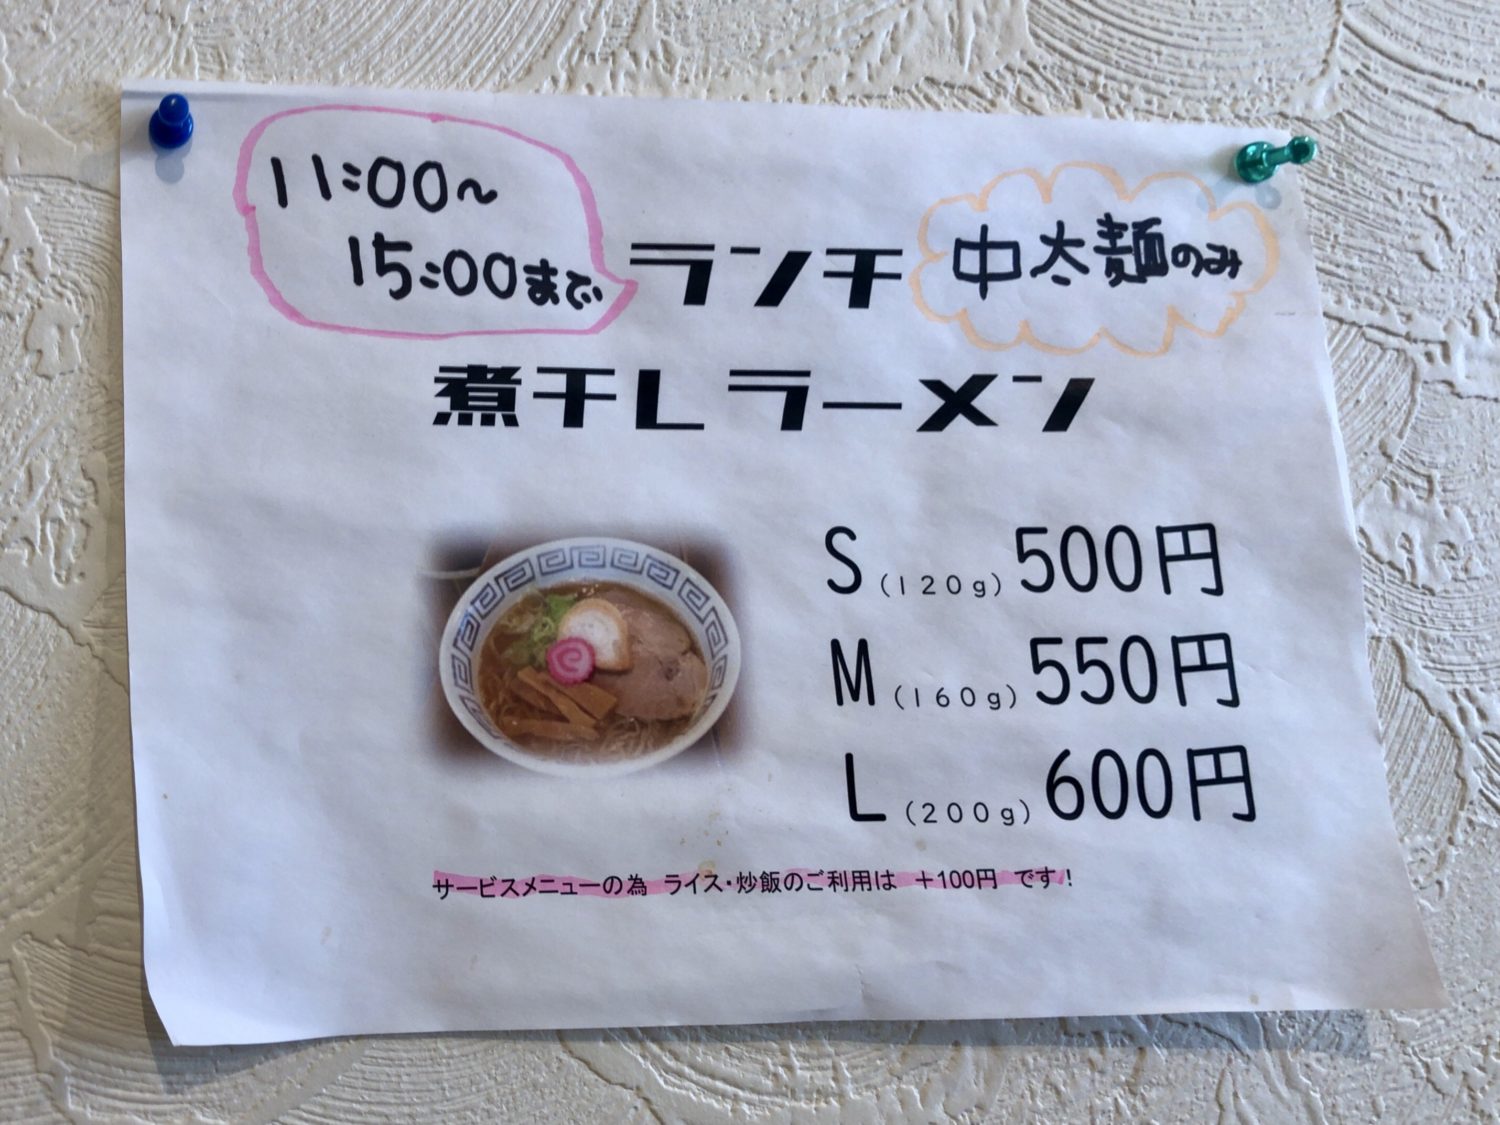 11:00～
15:00まで
ランチ
中太麺のみ
煮干しラーメン
S（120g）500円
M（160g）550円
L（200g）600円
サービスメニューの為　ライス・炒飯のご利用は　＋100円　です！